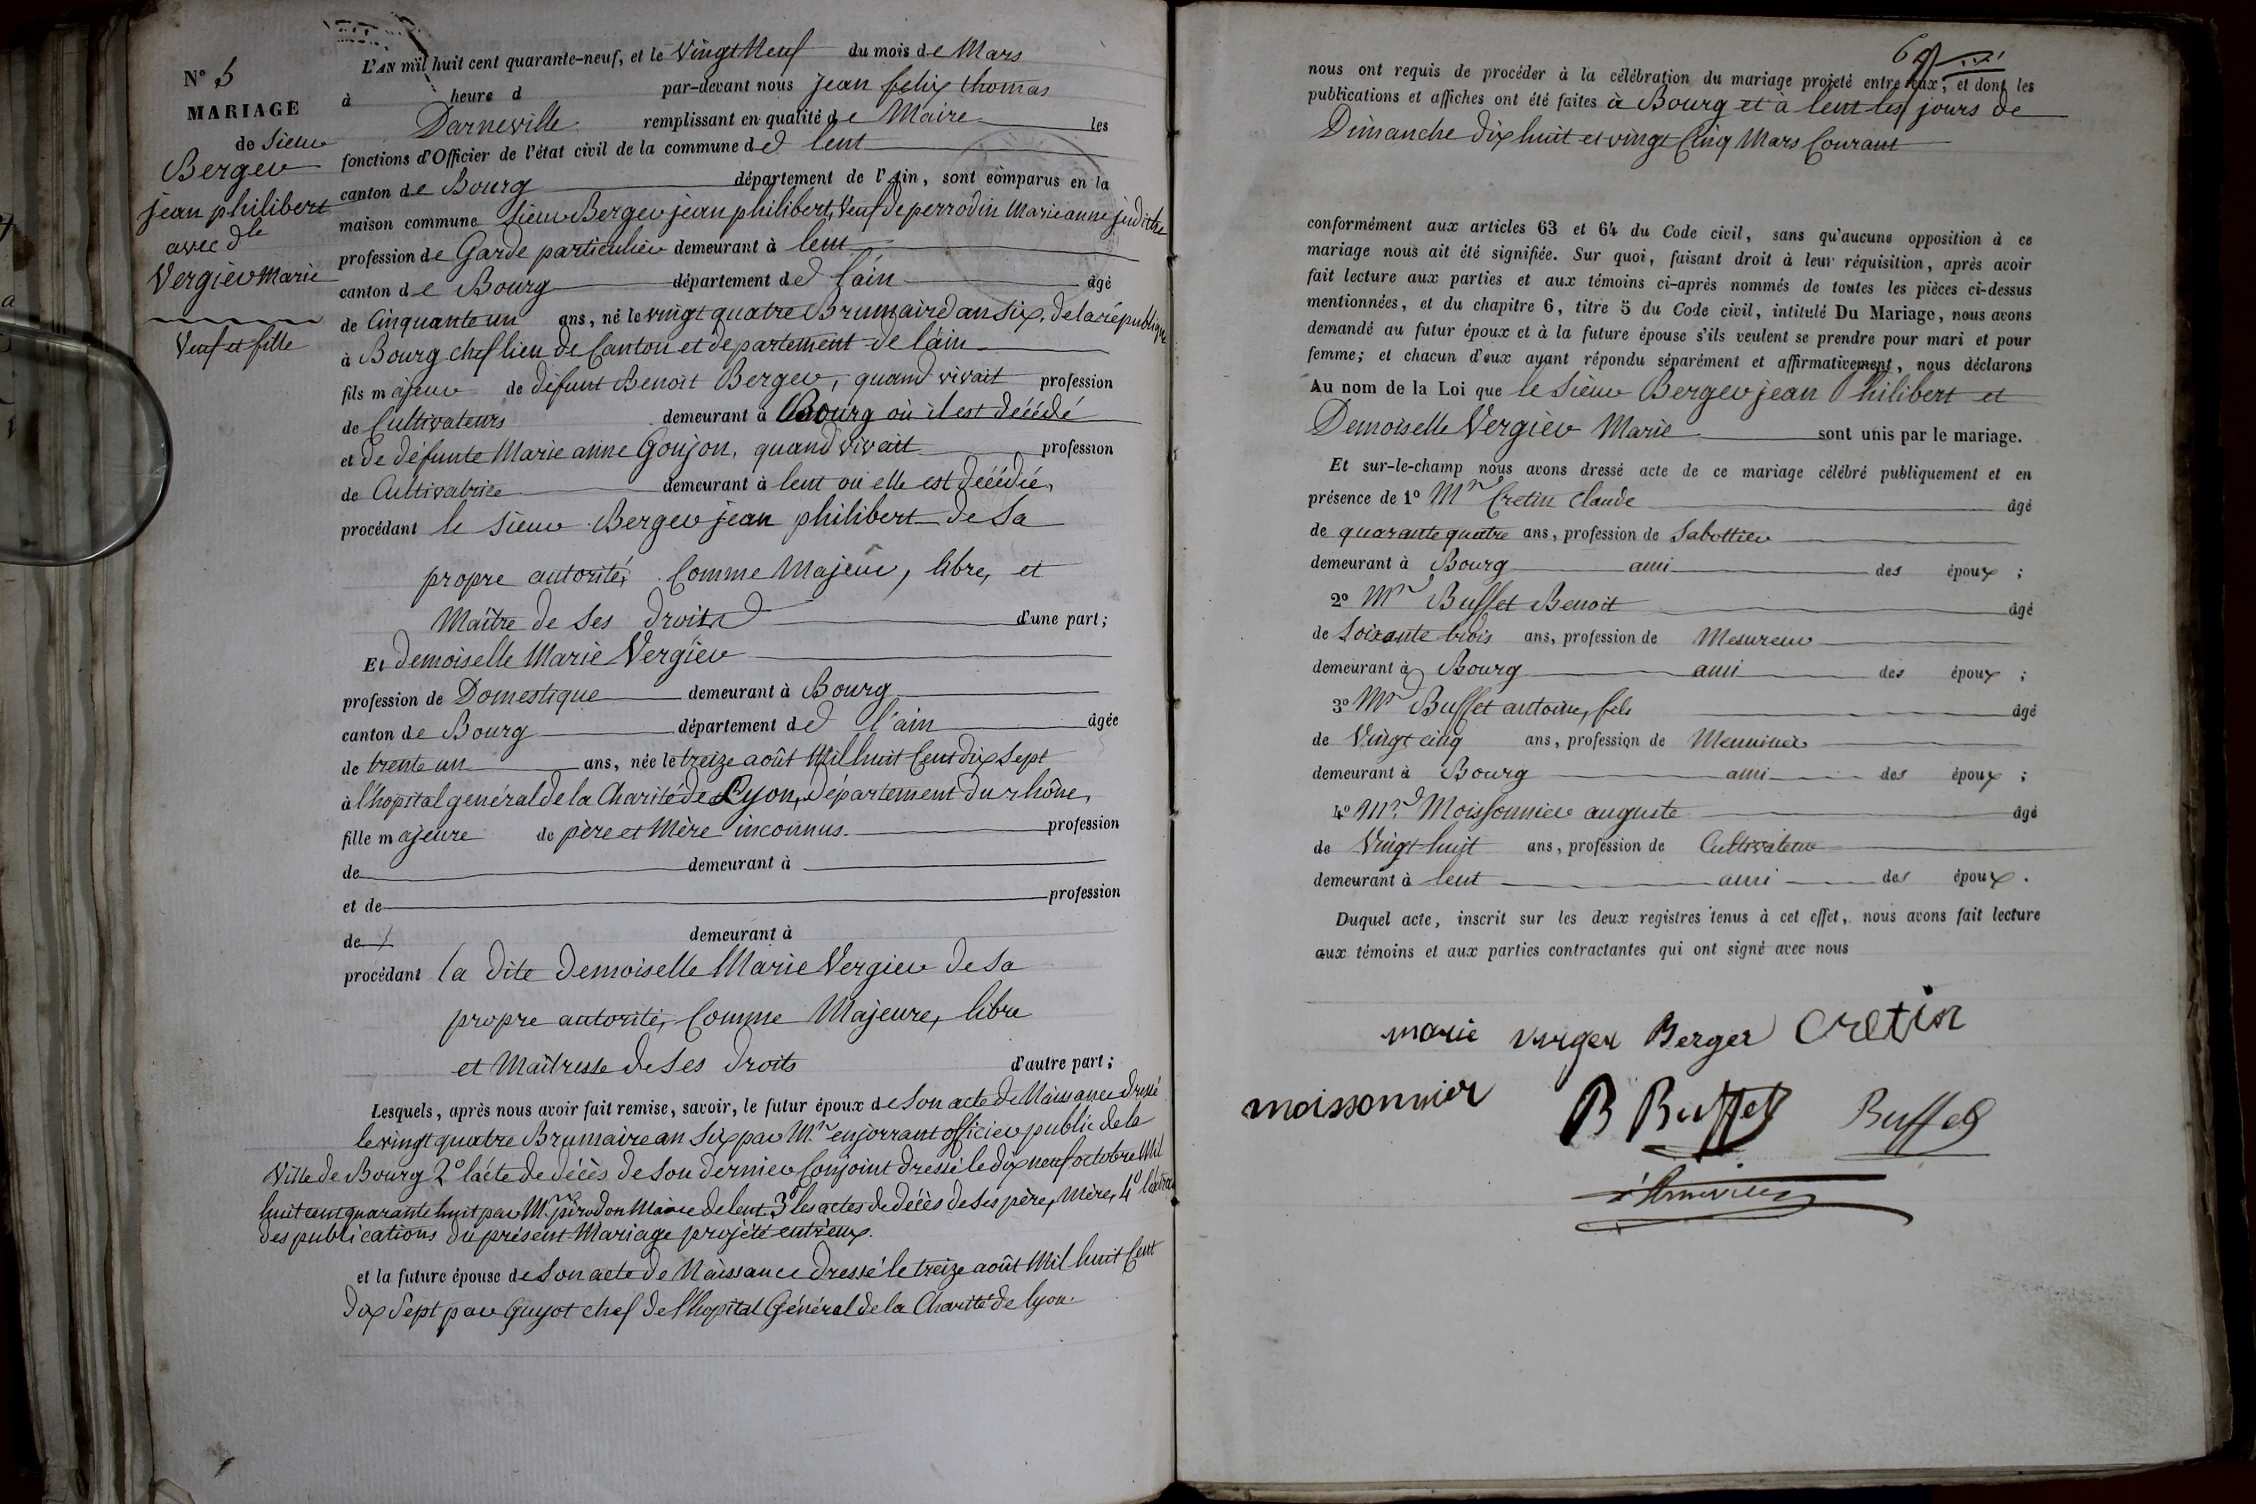 N° 5
MARIAGE
de Sieur
Berger
jean philibert
avec dlle
Vergier Marie
Veuf et fille
L'AN mil huit cent quarante-neuf, et le Vingt Neuf du mois de Mars
à heure d par-devant nous jean felix thomas
Darneville remplissant en qualité de Maire les
fonctions d'Officier de l'état civil de la commune de lent
canton de Bourg département de l'Ain, sont comparus en la
maison commune Sieur Berger jean philibert, Veuf de perrodin Marie anne judithe
profession de Garde particulier demeurant à lent
canton de Bourg département de l'áin âgé
de Cinquante un ans, né le vingt quatre Brumaire d'an Six, de la république
à Bourg chef lieu de Canton et département de l'áin
fils majeur de défunt Benoit Berger, quand vivait profession
de Cultivateurs demeurant à Bourg où il est décédé
et de défunte Marie anne Goujon, quand vivait profession
de Cultivatrice demeurant à lent où elle est décédée,
procédant le Sieur Berger jean philibert de Sa
propre autorité, Comme Majeur, libre, et
Maître de Ses droits d'une part;
Et demoiselle Marie Vergier
profession de Domestique demeurant à Bourg
canton de Bourg département de l'ain âgée
de trente un ans, née le treize août Mil huit Cent dix Sept
à l'hopital général de la Charité de Lyon, département du rhône,
fille majeure de père et Mère inconnus profession
de demeurant à
et de profession
de demeurant à
procédant la dite Demoiselle Marie Vergier de Sa
propre autorité, Comme Majeure, libre
et Maîtresse de Ses droits d'autre part;
Lesquels, après nous avoir fait remise, savoir, le futur époux de Son acte de Naissance dressé
le vingt quatre Brumaire an Six par Mr enjorrant officier public de la
Ville de Bourg 2° l'acte de décès de Son dernier Conjoint dressé le dix neuf octobre Mil
huit cent quarante huit par Mr pérodon Maire de lent 3° les actes de décès de Ses père, Mère, 4°
des publications du présent Mariage projété entr'eux.
et la future épouse de Son acte de Naissance dressé le treize août Mil huit Cent
dix Sept par Guyot chef de l'hopital Général de la Charité de lyon
nous ont requis de procéder à la célébration du mariage projeté entre eux, et dont les
publications et affiches ont été faites à Bourg et à lent les jours de
Dimanche dix huit et vingt Cinq Mars Courant
conformément aux articles 63 et 64 du Code civil, sans qu'aucune opposition à ce
mariage nous ait été signifiée. Sur quoi, faisant droit à leur réquisition, après avoir
fait lecture aux parties et aux témoins ci-après nommés de toutes les pièces ci-dessus
mentionnées, et du chapitre 6, titre 5 du Code civil, intitulé Du Mariage, nous avons
demandé au futur époux et à la future épouse s'ils veulent se prendre pour mari et pour
femme; et chacun d'eux ayant répondu séparément et affirmativement, nous déclarons
Au nom de la Loi que le Sieur Berger jean Philibert et
Demoiselle Vergier Marie sont unis par le mariage.
Et sur-le-champ nous avons dressé acte de ce mariage célébré publiquement et en
présence de 1° Mr Cretin Claude âgé
de quarante quatre ans, profession de Sabottier
demeurant à Bourg ami des époux;
2° Mr Buffet Benoit âgé
de Soixante trois ans, profession de Mesureur
demeurant à Bourg ami des époux;
3° Mr Buffet antoine, fils âgé
de Vingt cinq ans, profession de Menuisier
demeurant à Bourg ami des époux;
4° Mr Moissonnier auguste âgé
de Vingt huit ans, profession de Cultivateur
demeurant à lent ami des époux.
Duquel acte, inscrit sur les deux registres tenus à cet effet, nous avons fait lecture
aux témoins et aux parties contractantes qui ont signé avec nous
marie verger Berger cretin
moissonnier B Buffet Buffet